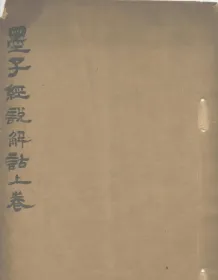 墨子經說解詁上卷